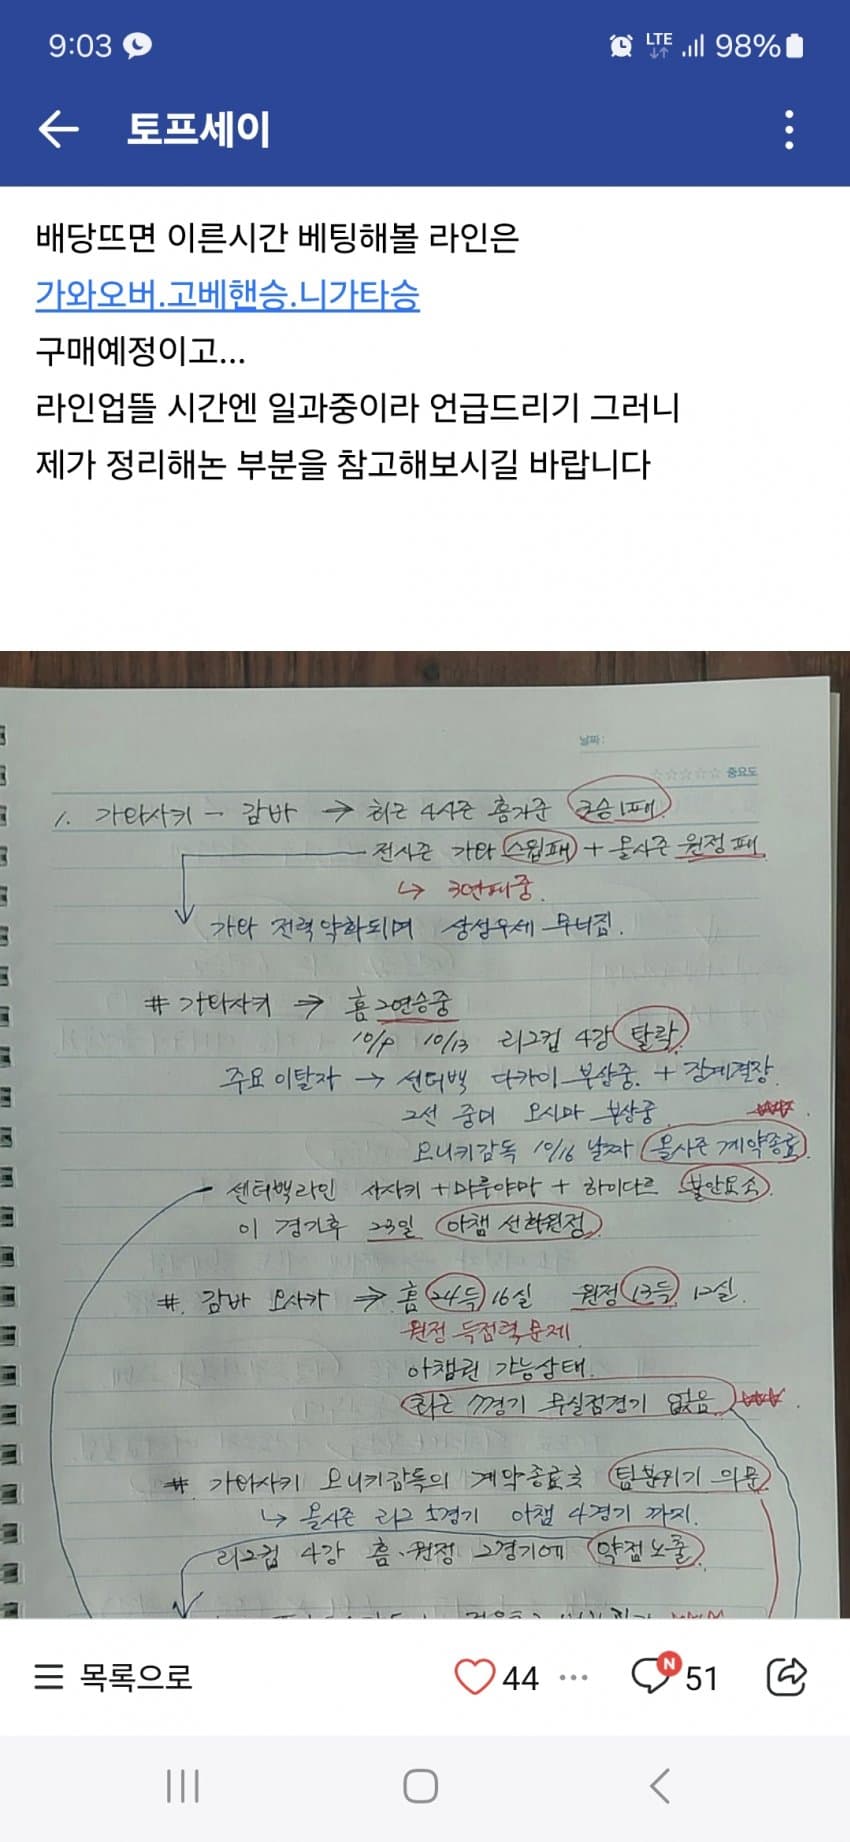 9:03
LTE
98%
토프세이
배당뜨면 이른시간 베팅해볼 라인은
가와오버.고베핸승.니가타승
구매예정이고...
라인업뜰 시간엔 일과중이라 언급드리기 그러니
제가 정리해논 부분을 참고해보시길 바랍니다
날짜 :
☆☆☆☆☆ 중요도
1. 가와사키 - 감바 → 최근 4시즌 홈기준 3승1패
전시즌 가와 스윕패 + 올시즌 원정패
↳ 3연패중.
가와 전력약화되며 상성우세 무너짐.
# 가와사키 → 홈 2연승중
10/9 10/13 리그컵 4강 탈락
주요이탈자 → 센터백 다카이 부상중. + 장계결장.
2선 중미 오시마 부상중
오니키감독 10/16 날짜 올시즌 계약종료
센터백라인 사사키 + 마루야마 + 하이다르 불안요소
이 경기후 23일 아챔 선화원정
#. 감바 오사카 → 홈 24득 16실 원정 13득 12실.
원정 득점력문제
아챔권 가능상태.
최근 7경기 무실점경기 없음
# 가와사키 오니키감독의 계약종료로 팀분위기 의문
↳ 올시즌 리그 5경기 아챔 4경기 까지.
리그컵 4강 홈.원정 2경기에 약점노출
목록으로
44
N
51